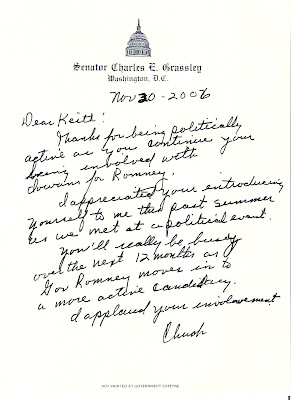 Senator Charles E. Grassley
Washington, D.C.
Nov 30-2006
Dear Keith:
Thanks for being politically
active as you continue your
being involved with
Iowans for Romney.
I appreciated your introducing
yourself to me this past summer
as we met at a political event.
You'll really be busy
over the next 12 months as
Gov Romney moves in to
a more active candidacy.
I applaud your involvement
Chuck
NOT PRINTED AT GOVERNMENT EXPENSE